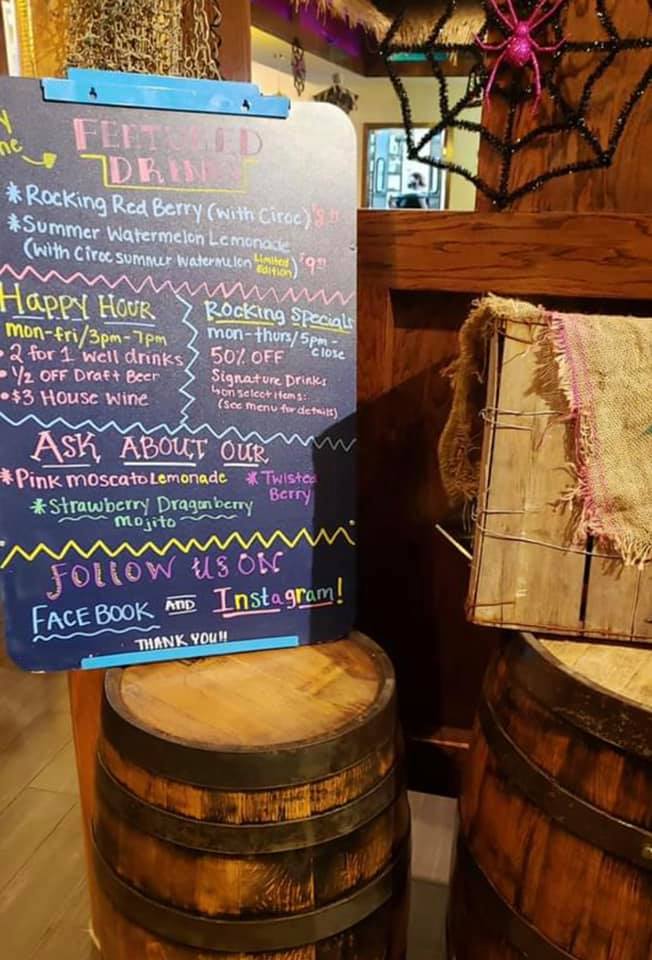 FEATURED
DRINKS
*Rocking Red Berry (with Ciroc)
*Summer Watermelon Lemonade
(with Ciroc summer watermelon Limited Edition) $9
Happy Hour
mon-fri/3pm-7pm
• 2 for 1 well drinks
• 1/2 OFF Draft Beer
• $3 House wine
Rocking Specials
mon-thurs/5pm-
close
50% OFF
Signature Drinks
on select items:
(see menu for details)
ASK ABOUT OUR
*Pink moscato Lemonade
*Twisted
Berry
*Strawberry Dragonberry
mojito
FOLLOW US ON
FACEBOOK AND Instagram!
THANK YOU!!